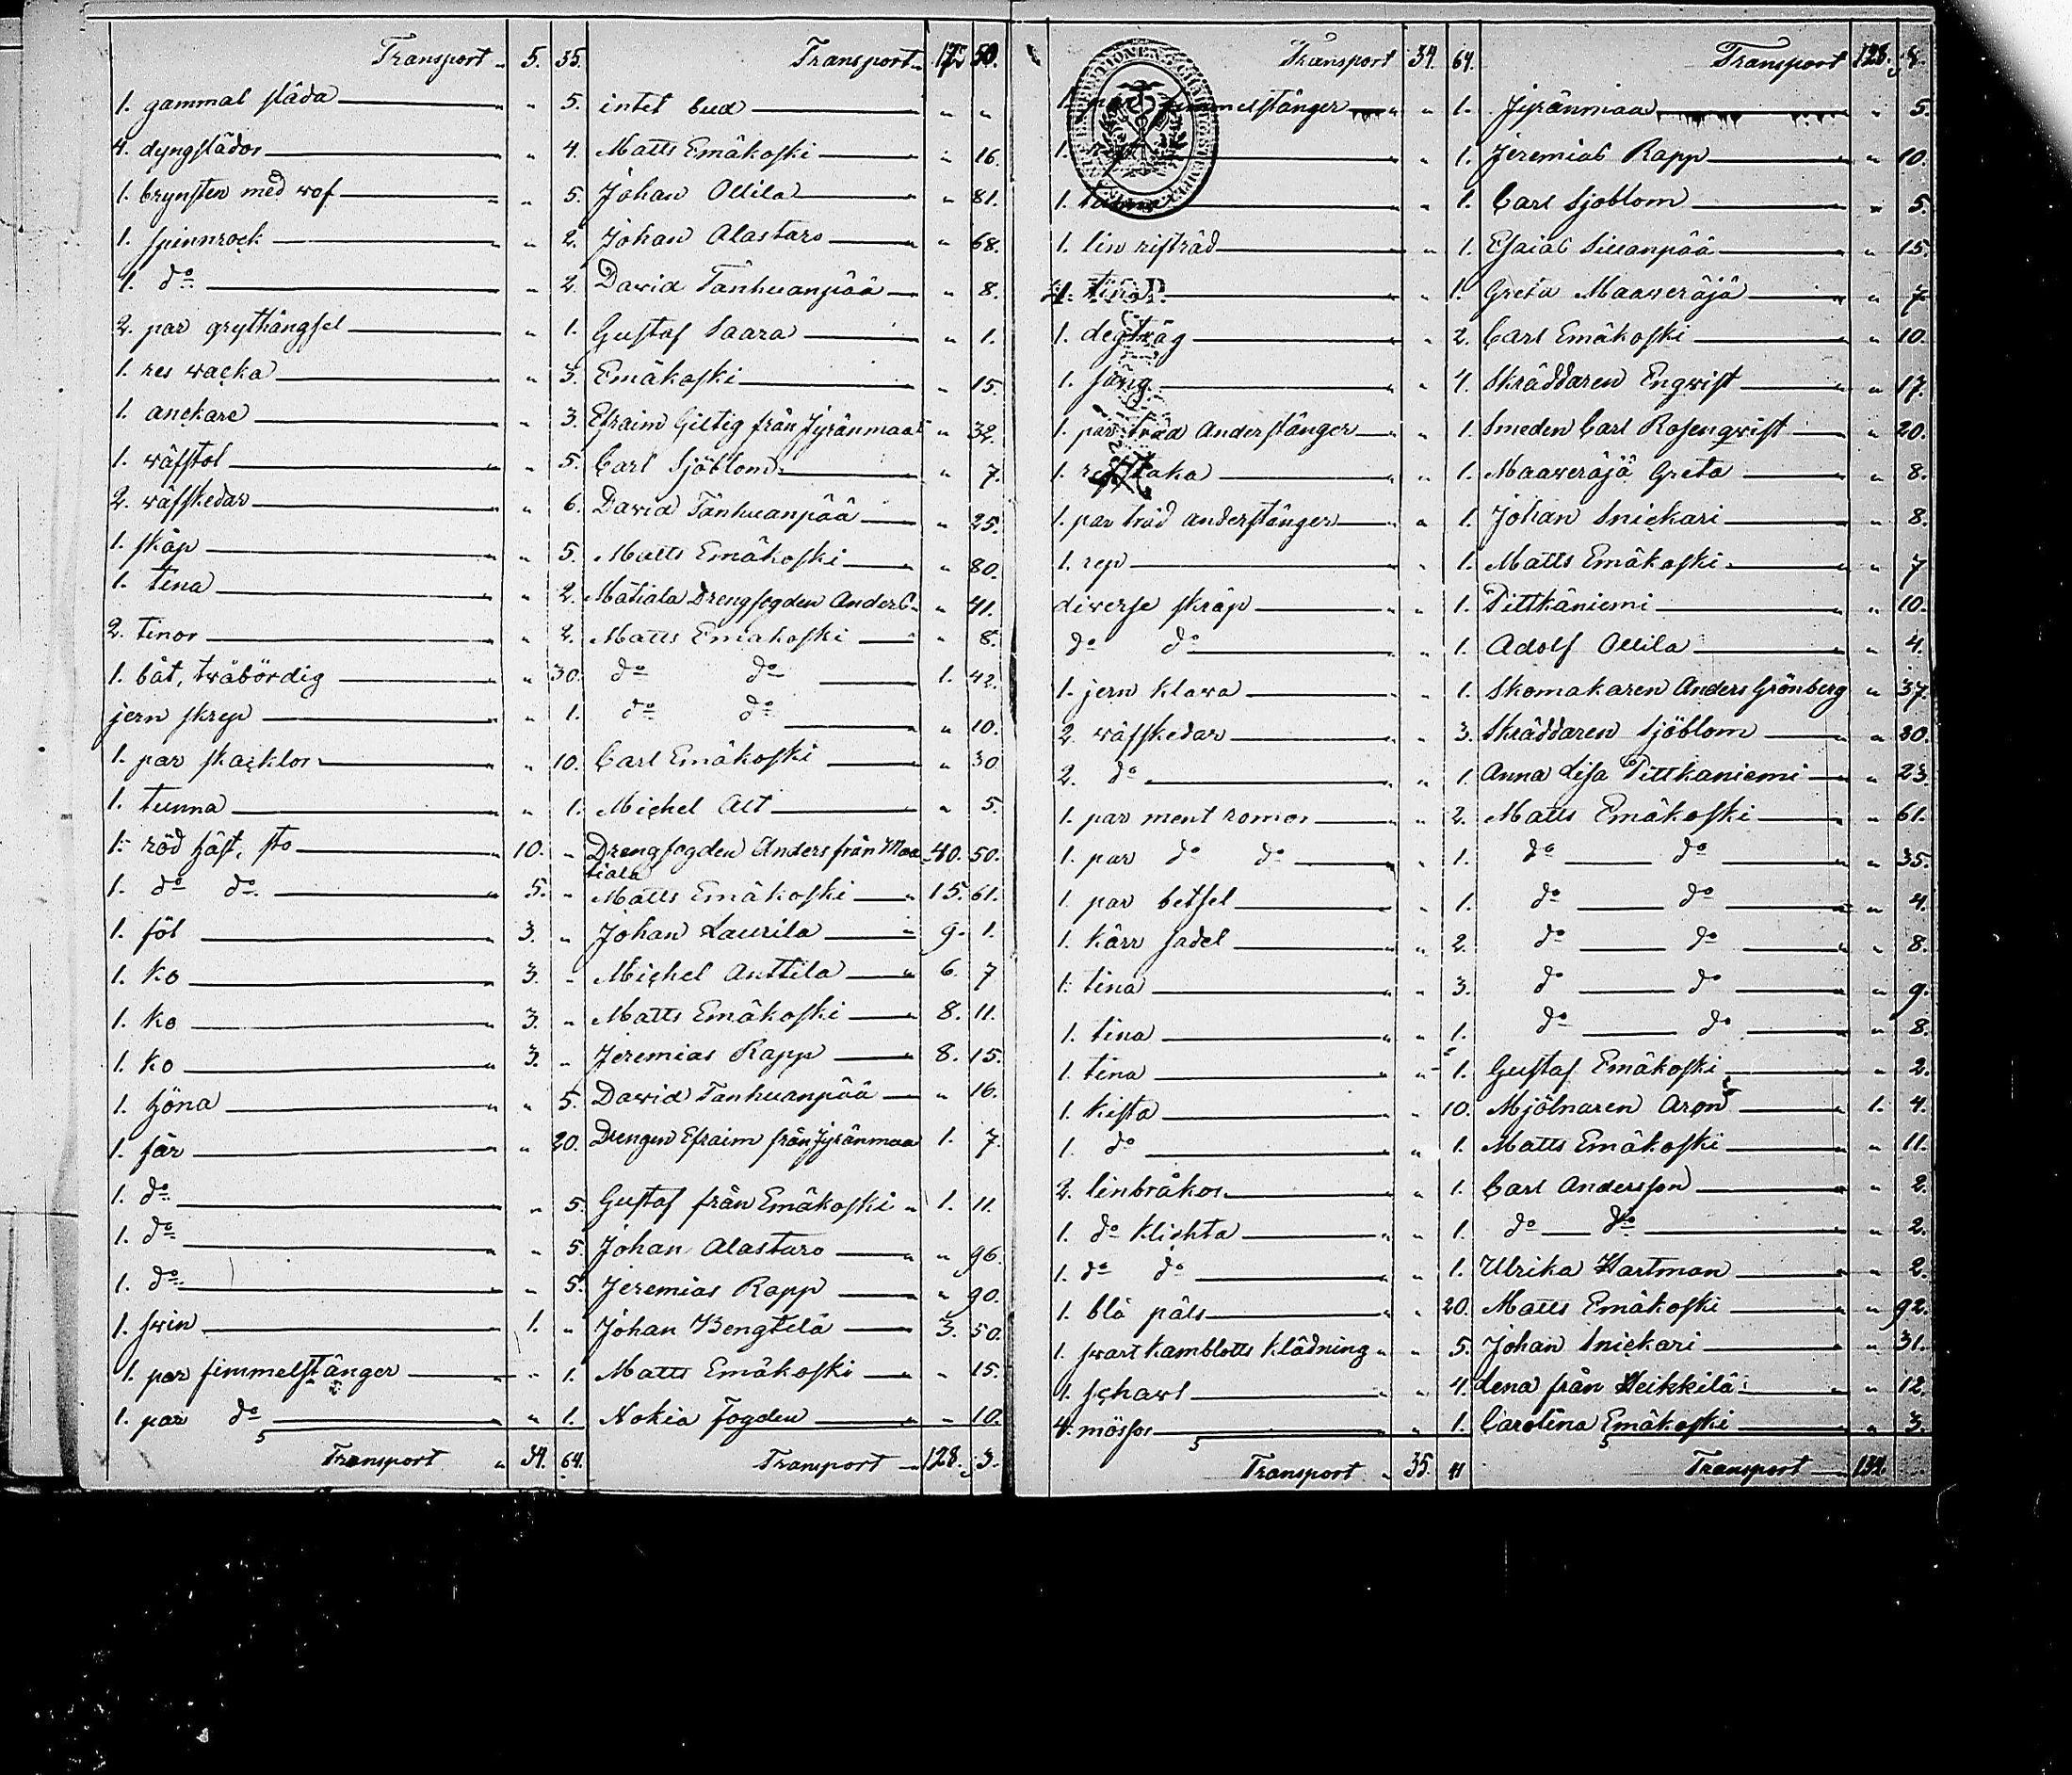 Transport 5. 35. Transport 17 50.
1. gammal släda " 5. intet bud " "
4. dyngslädor " 4. Matts Emäkoski " 16.
1. brynsten med wef " 5. Johan Ollila " 81.
1. spinnrock " 2. Johan Alastaro " 68.
1. do " 2. David Tanhuanpää " 8.
2. par grythängsel " 1. Gustaf Saara " 1.
1. res wacka " 3. Emäkoski " 15.
1. anckare " 3. Efraim Giltig från Jyränmaa " 32.
1. wäfstol " 5. Carl Sjöblom " 7.
2. wäfskedar " 6. David Tanhuanpää " 25.
1. skåp " 5. Matts Emäkoski " 80.
1. tina " 2. Matiala Drengfogden Anders " 41.
2. tinor " 2. Matts Emäkoski " 8.
1. båt, twåbördig " 30. do do 1. 42.
jern skrep " 1. do do " 10.
1. par skacklor " 10. Carl Emäkoski " 30
1. tunna " 1. Michel Alt " 5.
1. röd häst, sto 10. " Drengfogden Anders från Maa 40. 50.
tiala
1. do do 5. " Matts Emäkoski 15. 61.
1. föl 3. " Johan Laurila 9. 1.
1. ko 3. " Michel Anttila 6. 7
1. ko 3. " Matts Emäkoski 8. 11.
1. ko 3. " Jeremias Rapp 8. 15.
1. höna " 5. David Tanhuanpää " 16.
1. får " 20. Drengen Efraim från Jyränmaa 1. 7.
1. do " 5. Gustaf från Emäkoski 1. 11.
1. do " 5. Johan Alastaro " 96.
1. do " 5. Jeremias Rapp " 90.
1. swin 1. " Johan Bengtilä 3. 50.
1. par fimmelstänger " 1. Matts Emäkoski " 15.
1. par do " 1. Nokia fogden " 10.
Transport 34. 64. Transport 128. 3.
Transport 34. 64. Transport 128.
1. par fimmelstänger " 1. Jyränmaa " 5.
1. " 1. Jeremias Rapp " 10.
1. " 1. Carl Sjöblom " 5.
1. lin rifträd " 1. Esaias Siuanpää " 15.
1. tina " 1. Greta Maaweräjä " 7
1. degtråg " 2. Carl Emäkoski " 10.
1. säng " 4. Skräddaren Engwist " 17.
1. par träd anderstänger " 1. Smeden Carl Rosenqwist " 20.
1. " 1. Maaweräjä Greta " 8.
1. par träd anderstänger " 1. Johan Snickari " 8.
1. rep " 1. Matts Emäkoski " 7
diverse skräp " 1. Pittkäniemi " 10.
do do " 1. Adolf Ollila " 4.
1. jern klawa " 1. Skomakaren Anders Grönberg " 37.
2. wäfskedar " 3. Skräddaren Sjöblom " 30.
2. do " 1. Anna Lisa Pittkaniemi " 23.
1. par ment romor " 2. Matts Emäkoski " 61.
1. par do do " 1. do do " 35.
1. par betsel " 1. do do " 4.
1. kärr sadel " 2. do do " 8.
1. tina " 3. do do " 9.
1. tina " 1. do do " 8.
1. tina " 1. Gustaf Emäkoski " 2.
1. kista " 10. Mjölnaren Aron 1. 4.
1. do " 1. Matts Emäkoski " 11.
2. linbråkor " 1. Carl Andersson " 2.
1. do klichta " 1. do do " 2.
1. do do " 1. Ulrika Hartman " 2.
1. blå päls " 20. Matts Emäkoski " 92.
1. swart kamblotts klädning " 5. Johan Snickari " 31.
1. schawl " 4. Lena från Heikkilä " 12.
4. mössor " 1. Carolina Emäkoski " 3.
Transport 35. 41 Transport 134.